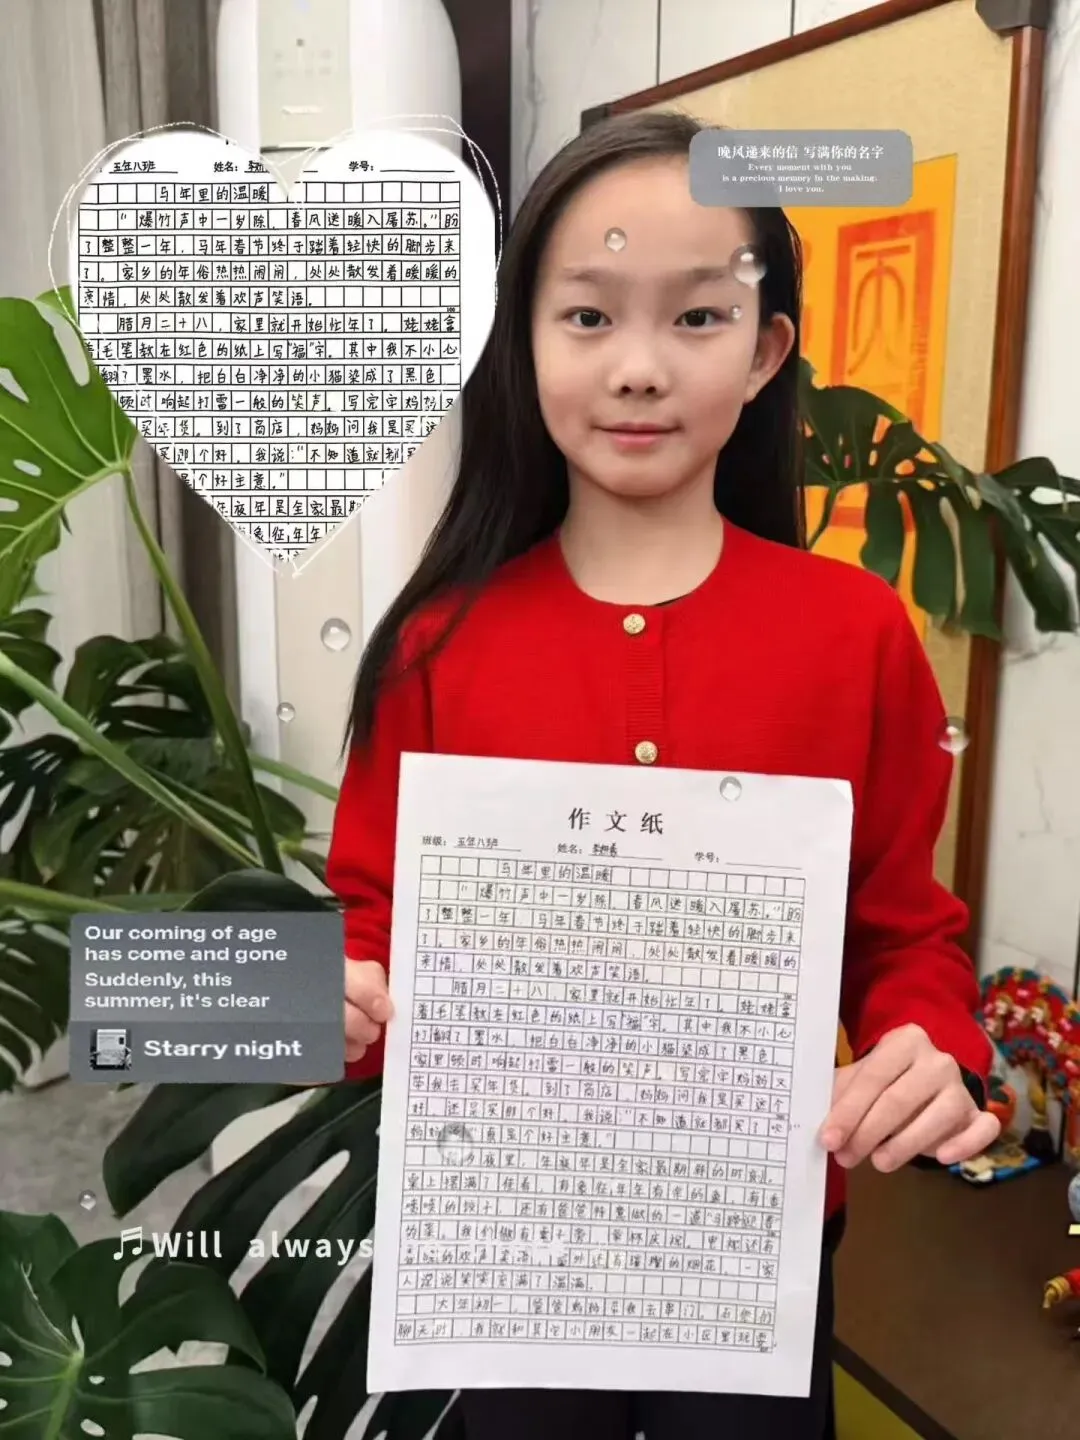 五年八班 姓名： 学号：
马年里的温暖
“爆竹声中一岁除，春风送暖入屠苏。”盼
了整整一年，马年春节终于踏着轻快的脚步来
了。家乡的年俗热热闹闹，处处散发着暖暖的
亲情，处处散发着欢声笑语。
腊月二十八，家里就开始忙年了。姥姥拿
着毛笔教在红色的纸上写“福”字。其中我不小心
翻了墨水，把白白净净的小猫染成了黑色
顿时响起打雷一般的笑声。写完字妈妈又
买年货。到了商店，妈妈问我是买这
买那个好，我说：“不知道就都买
是个好主意。”
年夜年是全家最期
象征年年
晚风递来的信 写满你的名字
Every moment with you
is a precious memory in the making.
I love you.
作文纸
班级： 五年八班 姓名： 学号：
马年里的温暖
“爆竹声中一岁除，春风送暖入屠苏。”盼
了整整一年，马年春节终于踏着轻快的脚步来
了。家乡的年俗热热闹闹，处处散发着暖暖的
亲情，处处散发着欢声笑语。
腊月二十八，家里就开始忙年了。姥姥拿
着毛笔教在红色的纸上写“福”字。其中我不小心
打翻了墨水，把白白净净的小猫染成了黑色，
家里顿时响起打雷一般的笑声。写完字妈妈又
带我去买年货。到了商店，妈妈问我是买这个
好，还是买那个好，我说：“不知道就都买了呗”
妈妈 真是个好主意。”
夜里，年夜年是全家最期 的时刻。
桌上摆满了佳肴，有象征年年有余的鱼，有香
喷喷的饺子，还有爸爸特意做的一道“马蹄
的菜。我们 举杯庆祝。 还有
的欢声笑语，窗外还有璀璨的烟花，一家
人 说笑笑充满了温满。
大年初一，爸爸妈妈带我去串门。在 们
聊天时，我就和其它小朋友一起在小区里玩耍
Our coming of age
has come and gone
Suddenly, this
summer, it's clear
Starry night
Will always